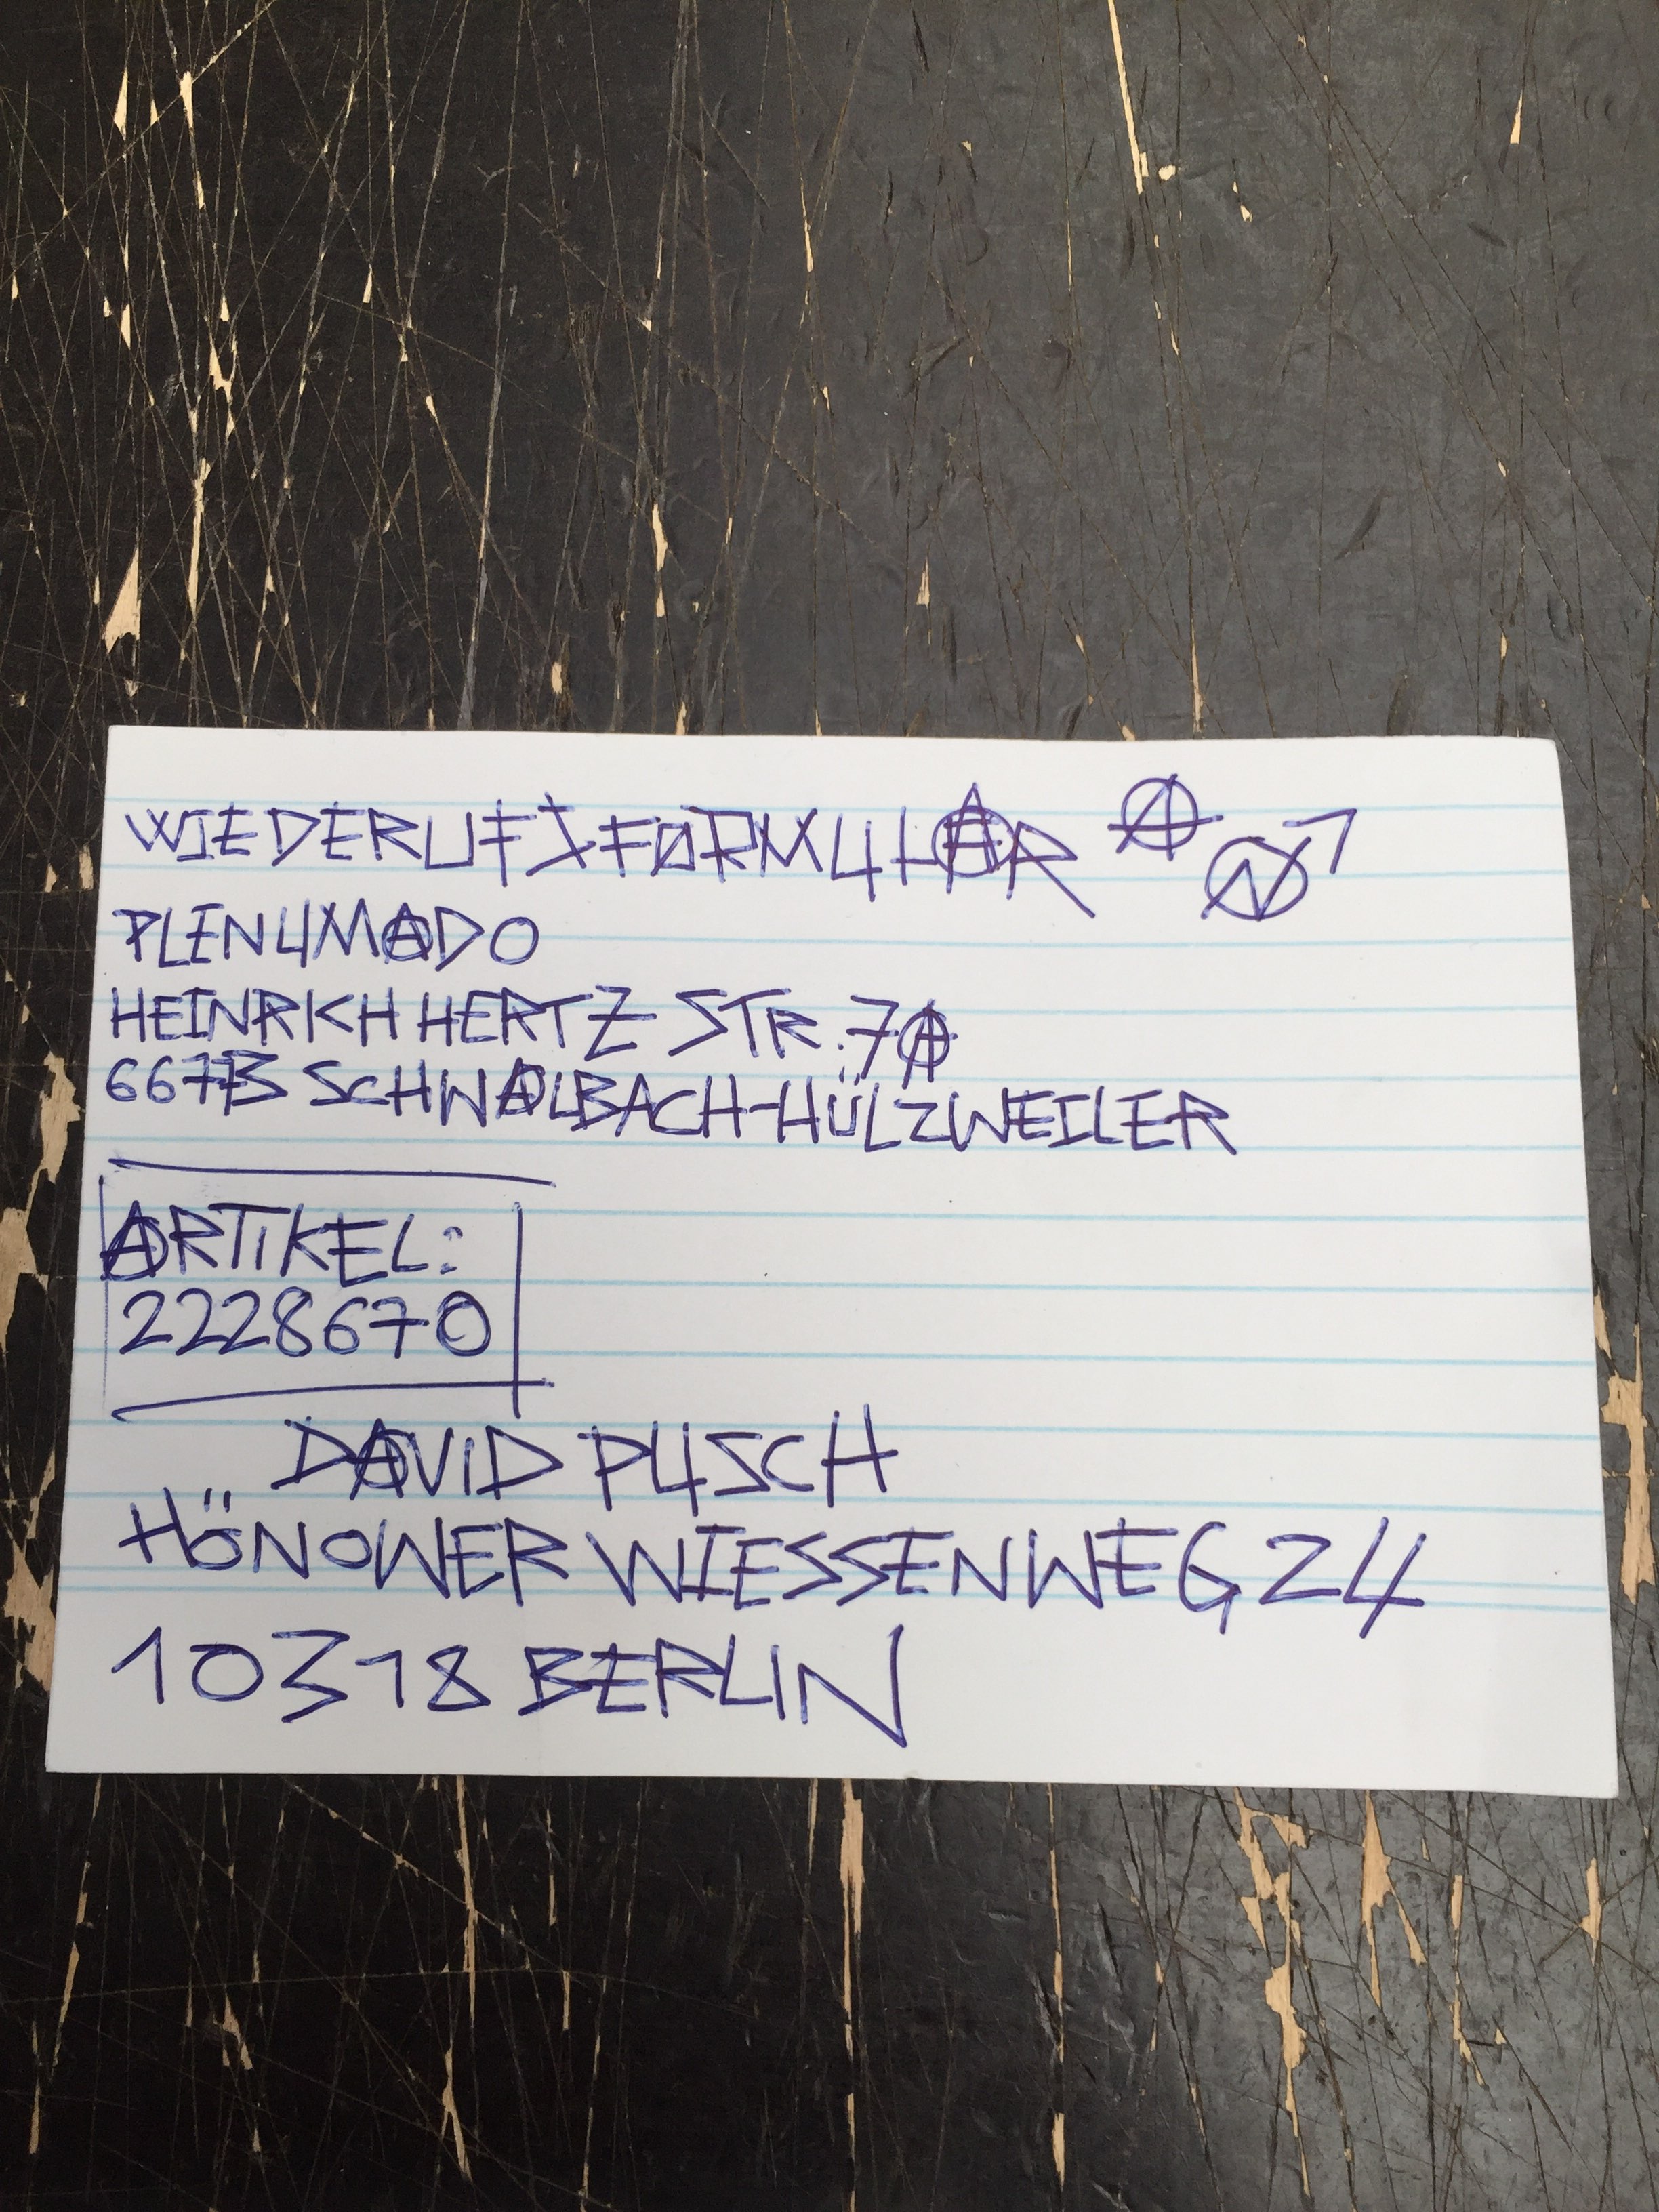 WIEDERUFSFORMULAR
PLENUMADO
HEINRICH HERTZ STR. 7A
66773 SCHWALBACH-HÜLZWEILER
ARTIKEL:
2228670
DAVID PUSCH
HÖNOWER WIESSENWEG 24
10318 BERLIN